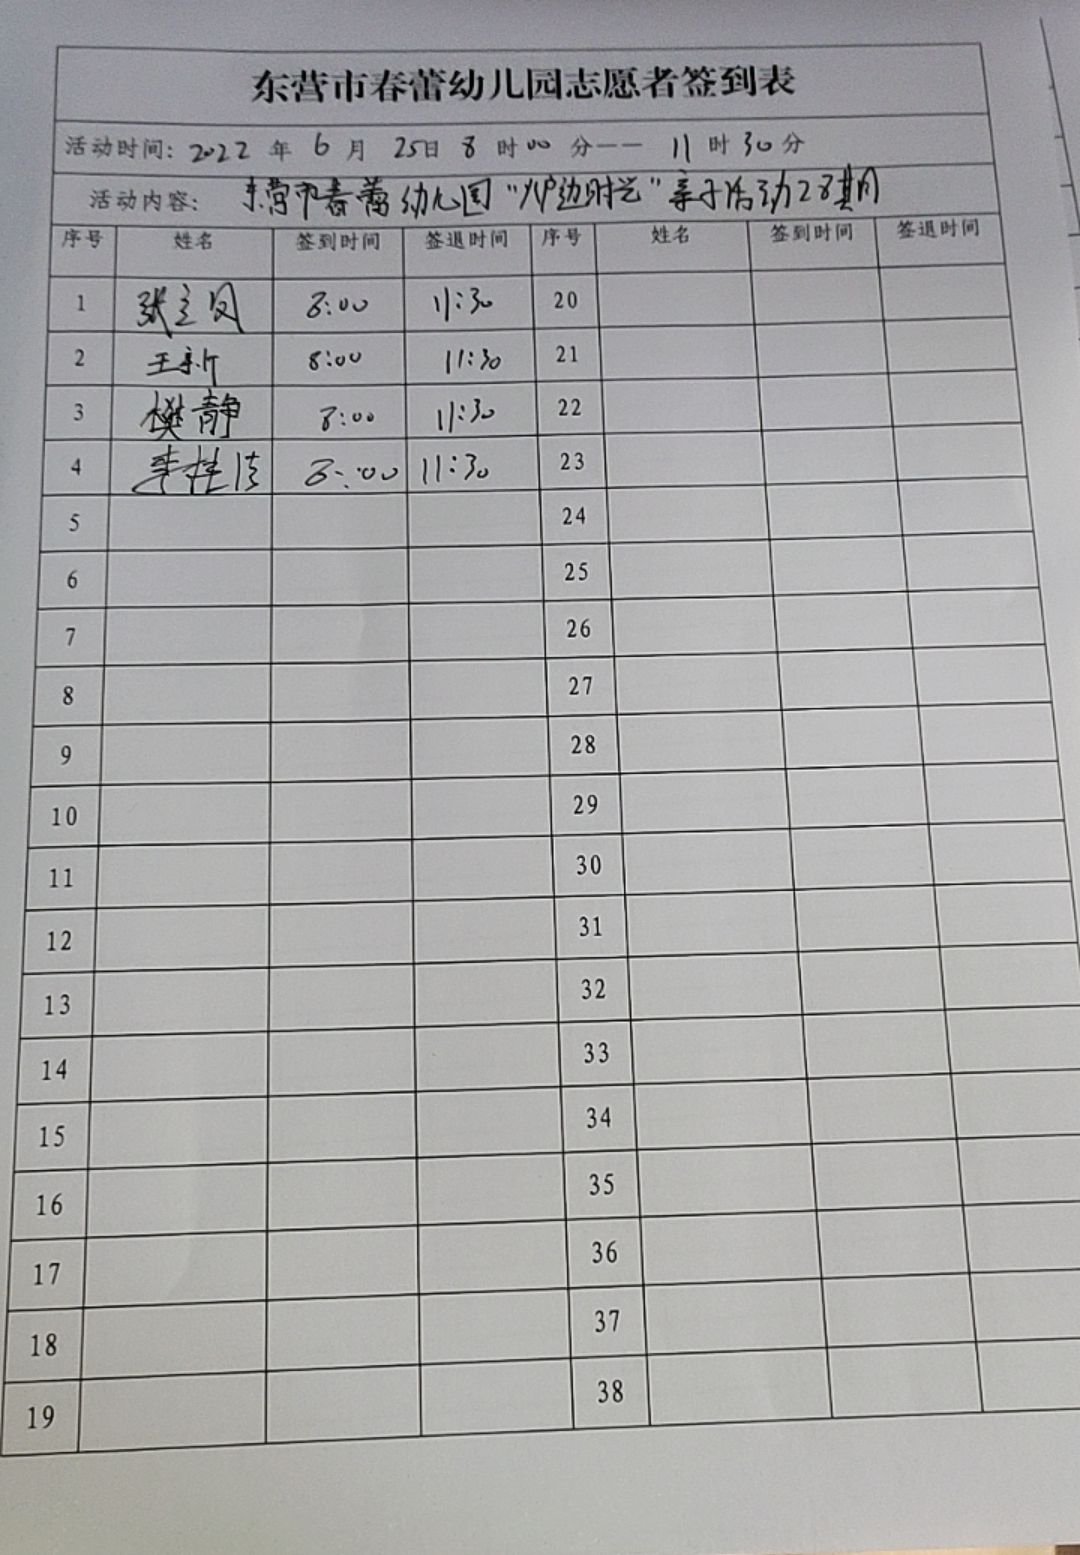 东营市春蕾幼儿园志愿者签到表
活动时间: 2022 年 6 月 25日 8 时 00 分—— 11 时 30 分
活动内容: 东营市春蕾幼儿园“炉边时光”亲子活动28期
序号 姓名 签到时间 签退时间 序号 姓名 签到时间 签退时间
1 张立凤 8:00 11:30 20
2 王新 8:00 11:30 21
3 樊静 8:00 11:30 22
4 李桂 8:00 11:30 23
5 24
6 25
7 26
8 27
9 28
10 29
11 30
12 31
13 32
14 33
15 34
16 35
17 36
18 37
19 38